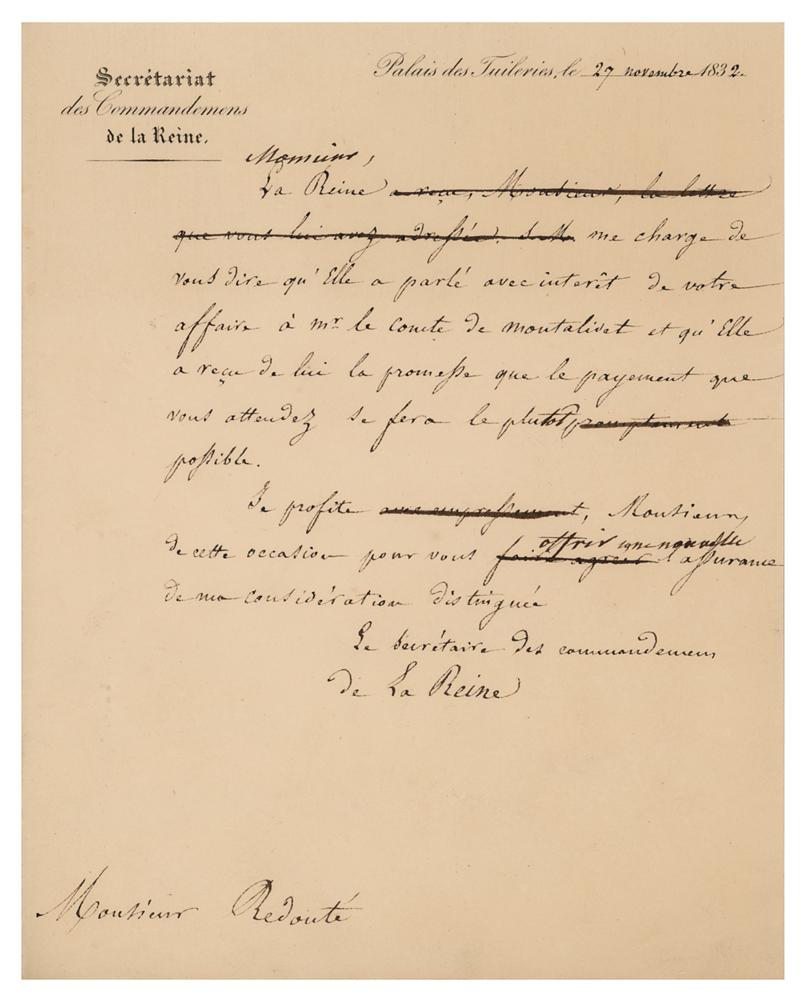 Secrétariat
des Commandemens
de la Reine.
Palais des Tuileries, le 27 novembre 1832.
Monsieur,
La Reine a reçu, Monsieur, la lettre
que vous lui avez adressée. S. M. me charge de
vous dire qu'Elle a parlé avec interêt de votre
affaire à mr. le comte de montalivet et qu'Elle
a reçu de lui la promesse que le payement que
vous attendez se fera le plutôt promptement
possible.
Je profite avec empressement, Monsieur,
de cette occasion pour vous faire agréer offrir une nouvelle l'assurance
de ma considération distinguée
Le secrétaire des commandemens
de La Reine
Monsieur Redouté